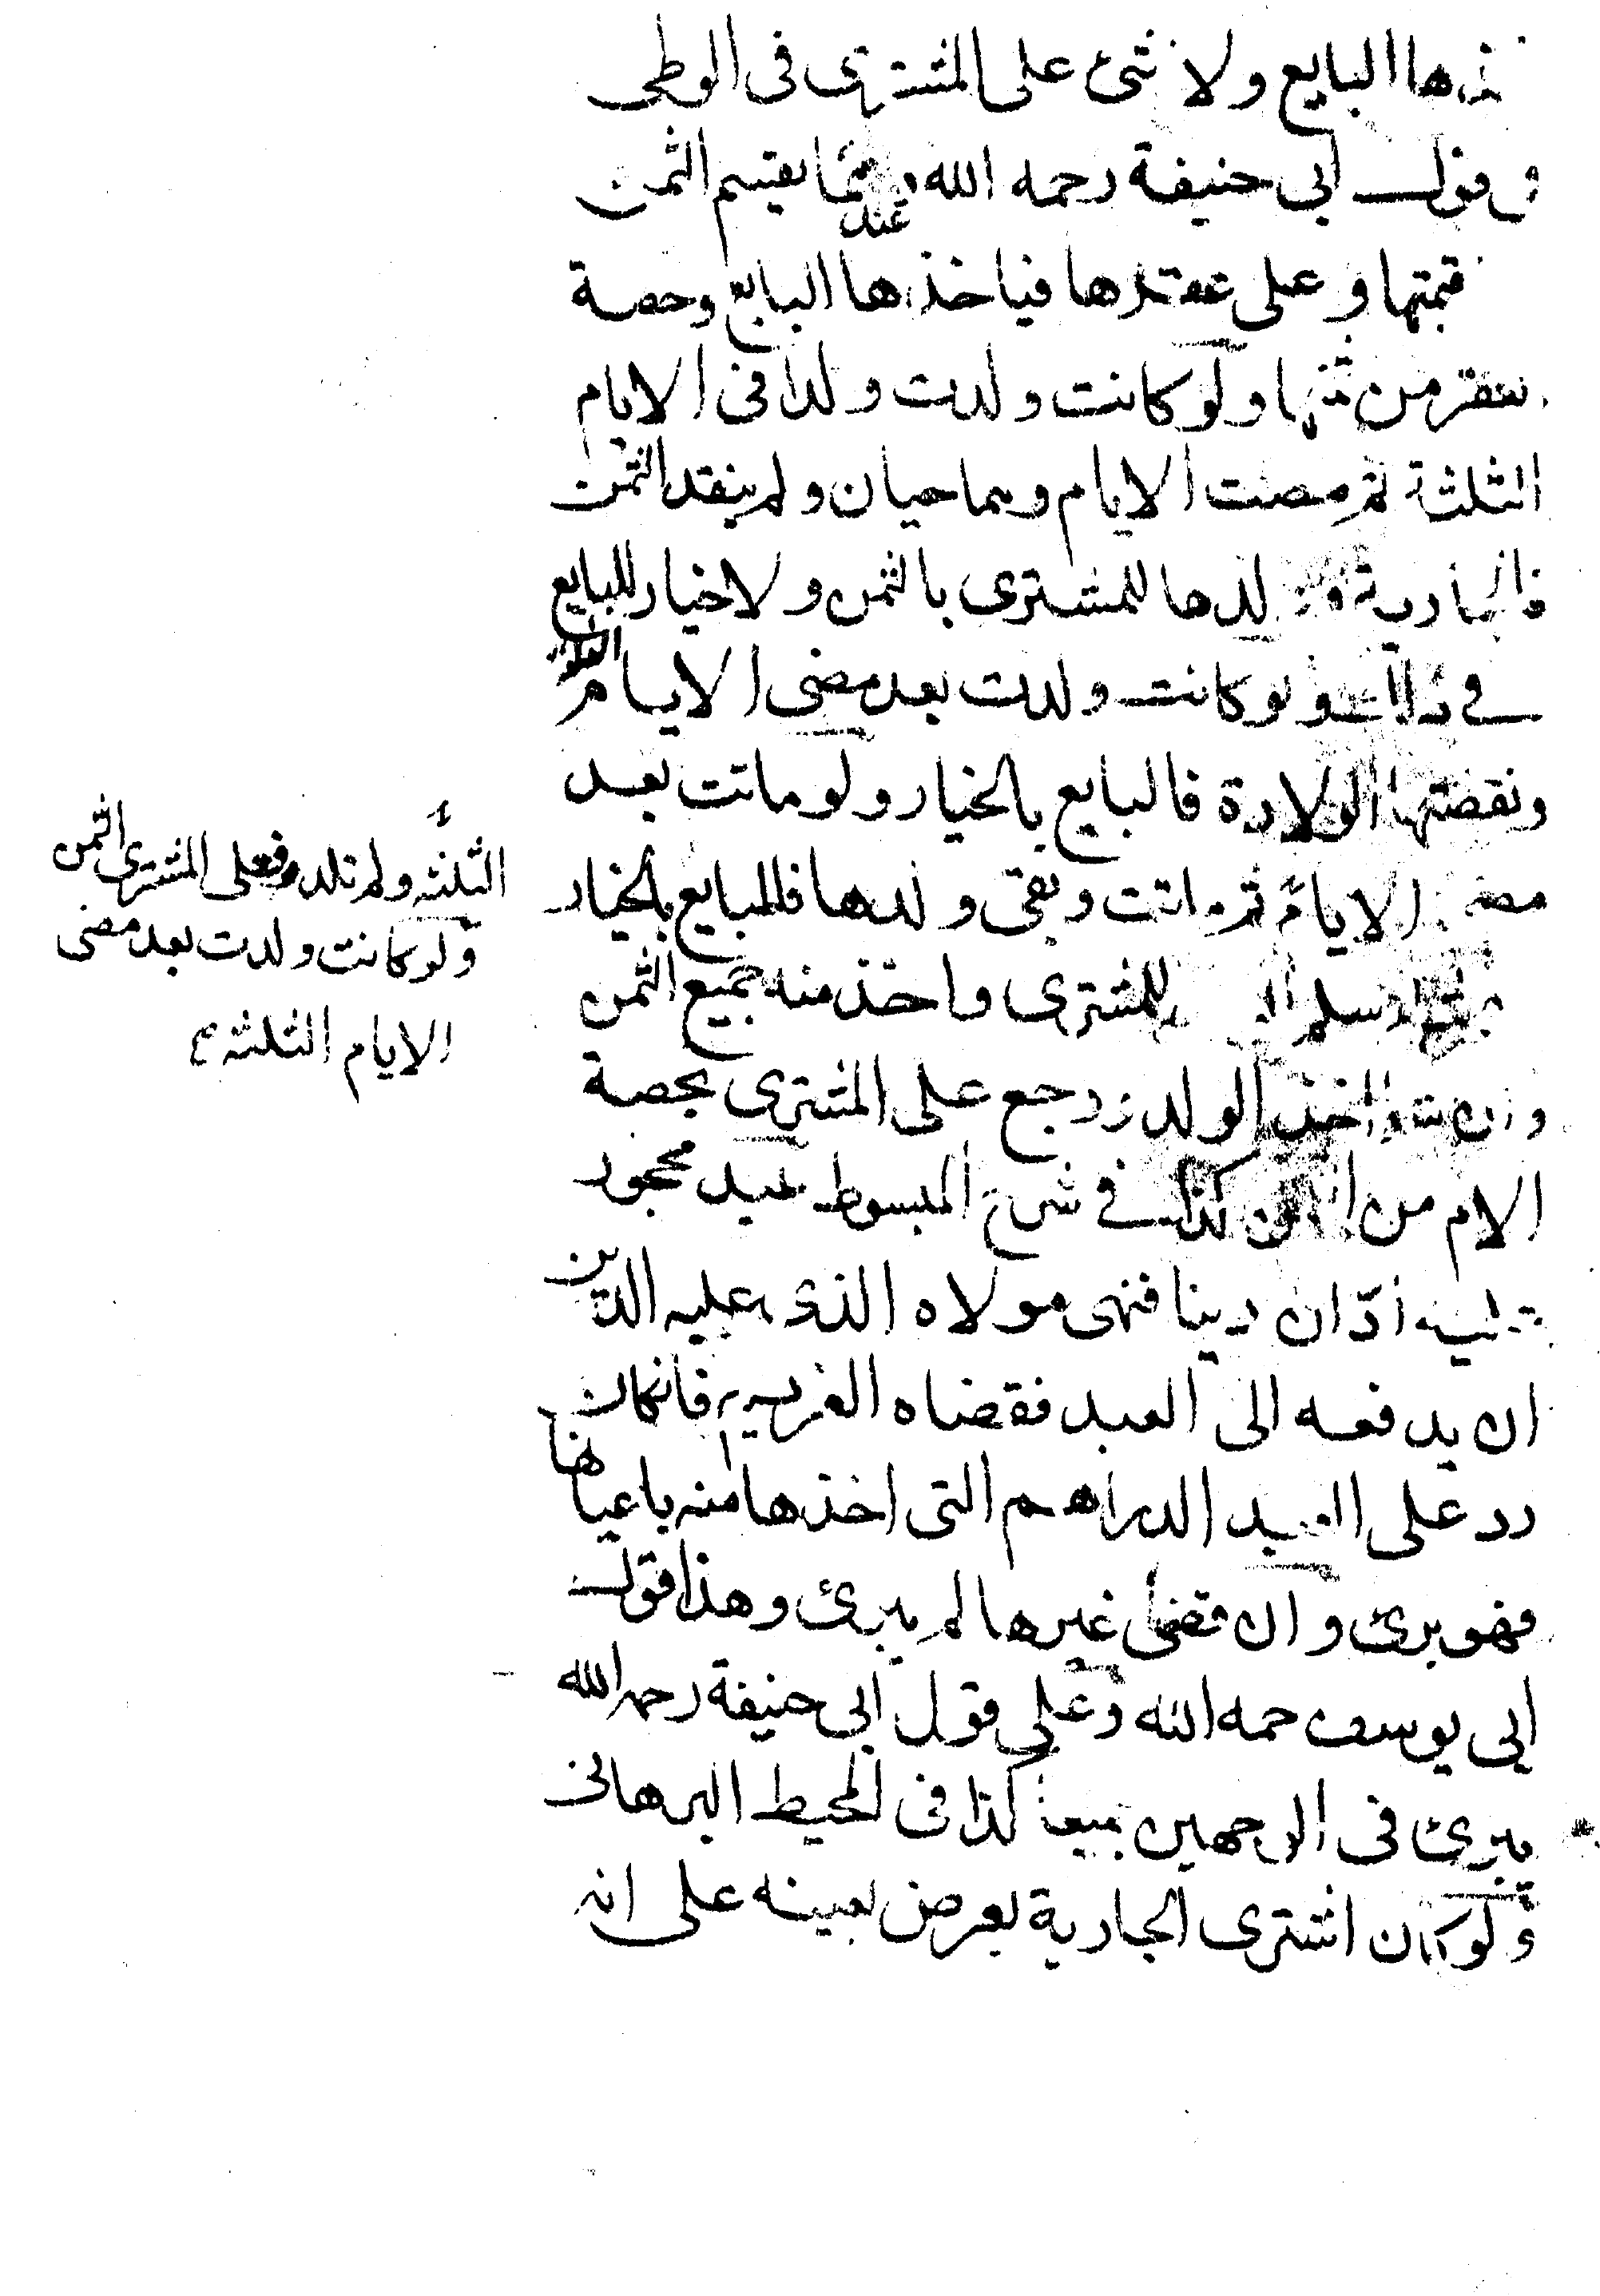 ها البايع ولا شئ على المشترى فى الوطى
قول ابى حنيفة رحمه الله يقسم الثمن
عند
قيمتها وعلى عقرها فياخذها البايع وحصة
العقر من ثمنها ولو كانت ولدت ولدا فى الايام
الثلثة ثم مضت الايام وهما حيان ولم ينقد الثمن
فالجارية وولدها للمشترى بالثمن ولا خيار للبايع
فى ذلك ولو كانت ولدت بعد مضى الايام
ونقصتها الولادة فالبايع بالخيار ولو ماتت بعد
مضى الايام ثم ماتت وبقى ولدها فالبايع بالخيار
سلم للمشترى واخذ منه جميع الثمن
وان شاء اخذ الولد ورجع على المشترى بحصة
الام من الثمن كذا فى شرح المبسوط عبد محجور
عليه ادان دينا فنهى مولاه الذى عليه الدين
ان يدفعه الى العبد فقضاه الغريم فان كان
رد على العبد الدراهم التى اخذها منه باعيانها
فهو برئ وان قضى غيرها لم يبرئ وهذا قول
ابى يوسف رحمه الله وعلى قول ابى حنيفة رحمه الله
يبرئ فى الوجهين جميعا كذا فى المحيط البرهانى
ولو كان اشترى الجارية بعرض بعينه على انه
الثلثة ولم تلد فعلى المشترى الثمن
ولو كانت ولدت بعد مضى
الايام الثلثة